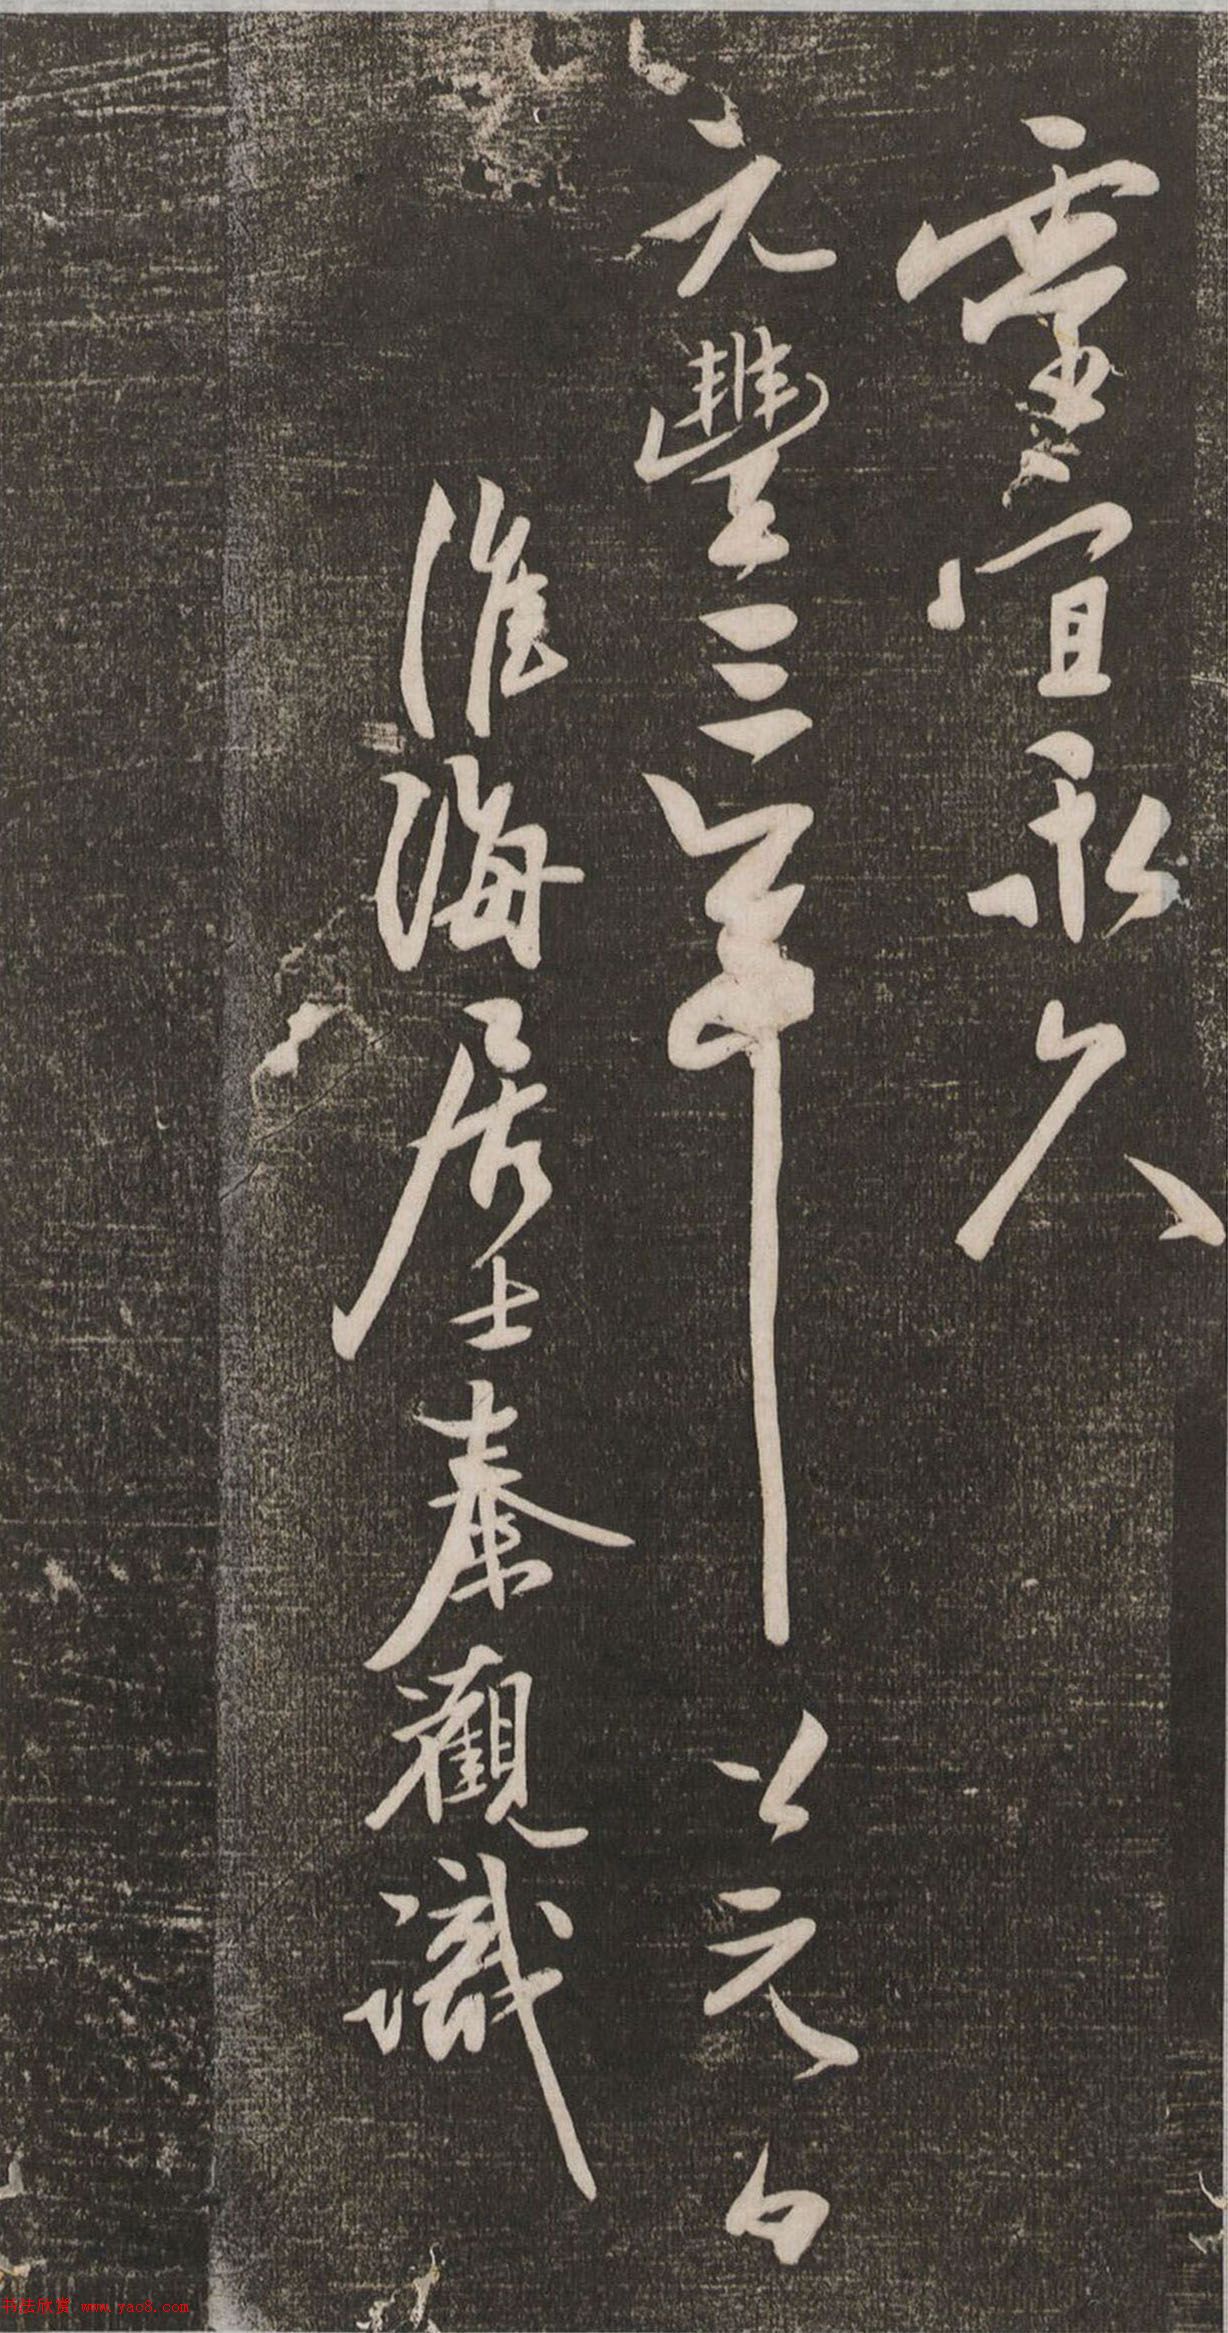 靈宜永久
元豐三年 上元日
淮海居士秦觀識
书法欣赏 www.yac8.com